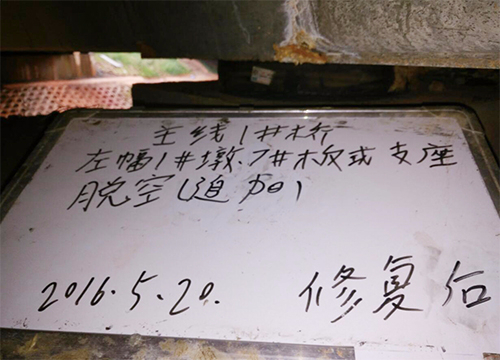 主线1#桥
左幅1#墩.7#板式支座
脱空(追加)
2016.5.20.
修复后